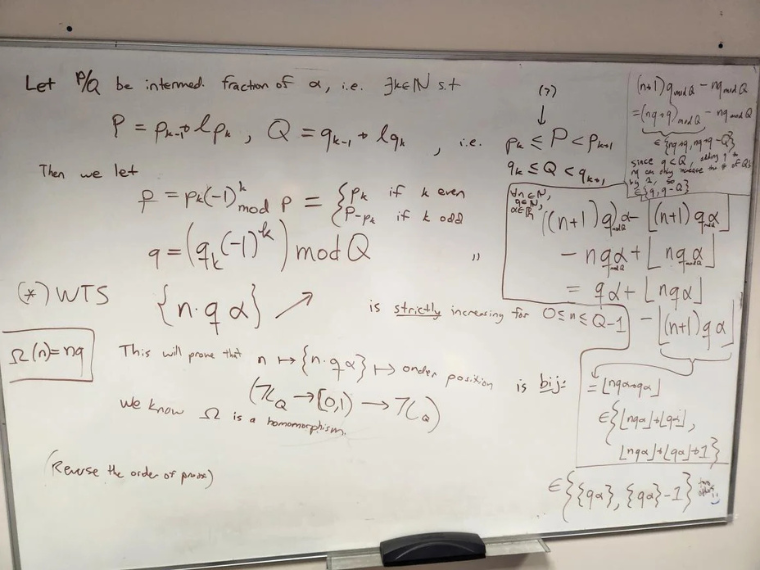 Let P/Q be intermed. fraction of α, i.e. ∃k∈ℕ s.t
P = p_{k-1} + l p_k , Q = q_{k-1} + l q_k , i.e.
(?)
↓
p_k ≤ P < p_{k+1}
q_k ≤ Q < q_{k+1}
Then we let
p = p_k(-1)^k mod P = { p_k if k even
P-p_k if k odd
q = (q_k(-1)^{-k}) mod Q "
(*) WTS {n·q α} ↗ is strictly increasing for 0 ≤ n ≤ Q-1
Ω(n) = nq
This will prove that n ↦ {n·qα} ↦ order position is bij:
(ℤ_Q → [0,1) → ℤ_Q)
We know Ω is a homomorphism.
(Reverse the order of proof)
(n+1)q mod Q - nq mod Q
= (nq+q) mod Q - nq mod Q
∈ {nq+q, nq+q-Q}
since q<Q, adding q to
nq can only increase the # of Q's
by 1,
∈ {q, q-Q}
∀n∈ℕ,
q∈ℕ,
α∈ℝ
((n+1)q)_{mod Q} α - ⌊(n+1)qα⌋
- nq_{mod Q} α + ⌊nq_{mod Q} α⌋
= qα + ⌊nqα⌋
- ⌊(n+1)qα⌋
= ⌊nqα+qα⌋
∈ {⌊nqα⌋+⌊qα⌋,
⌊nqα⌋+⌊qα⌋+1}
∈ {{qα}, {qα}-1}